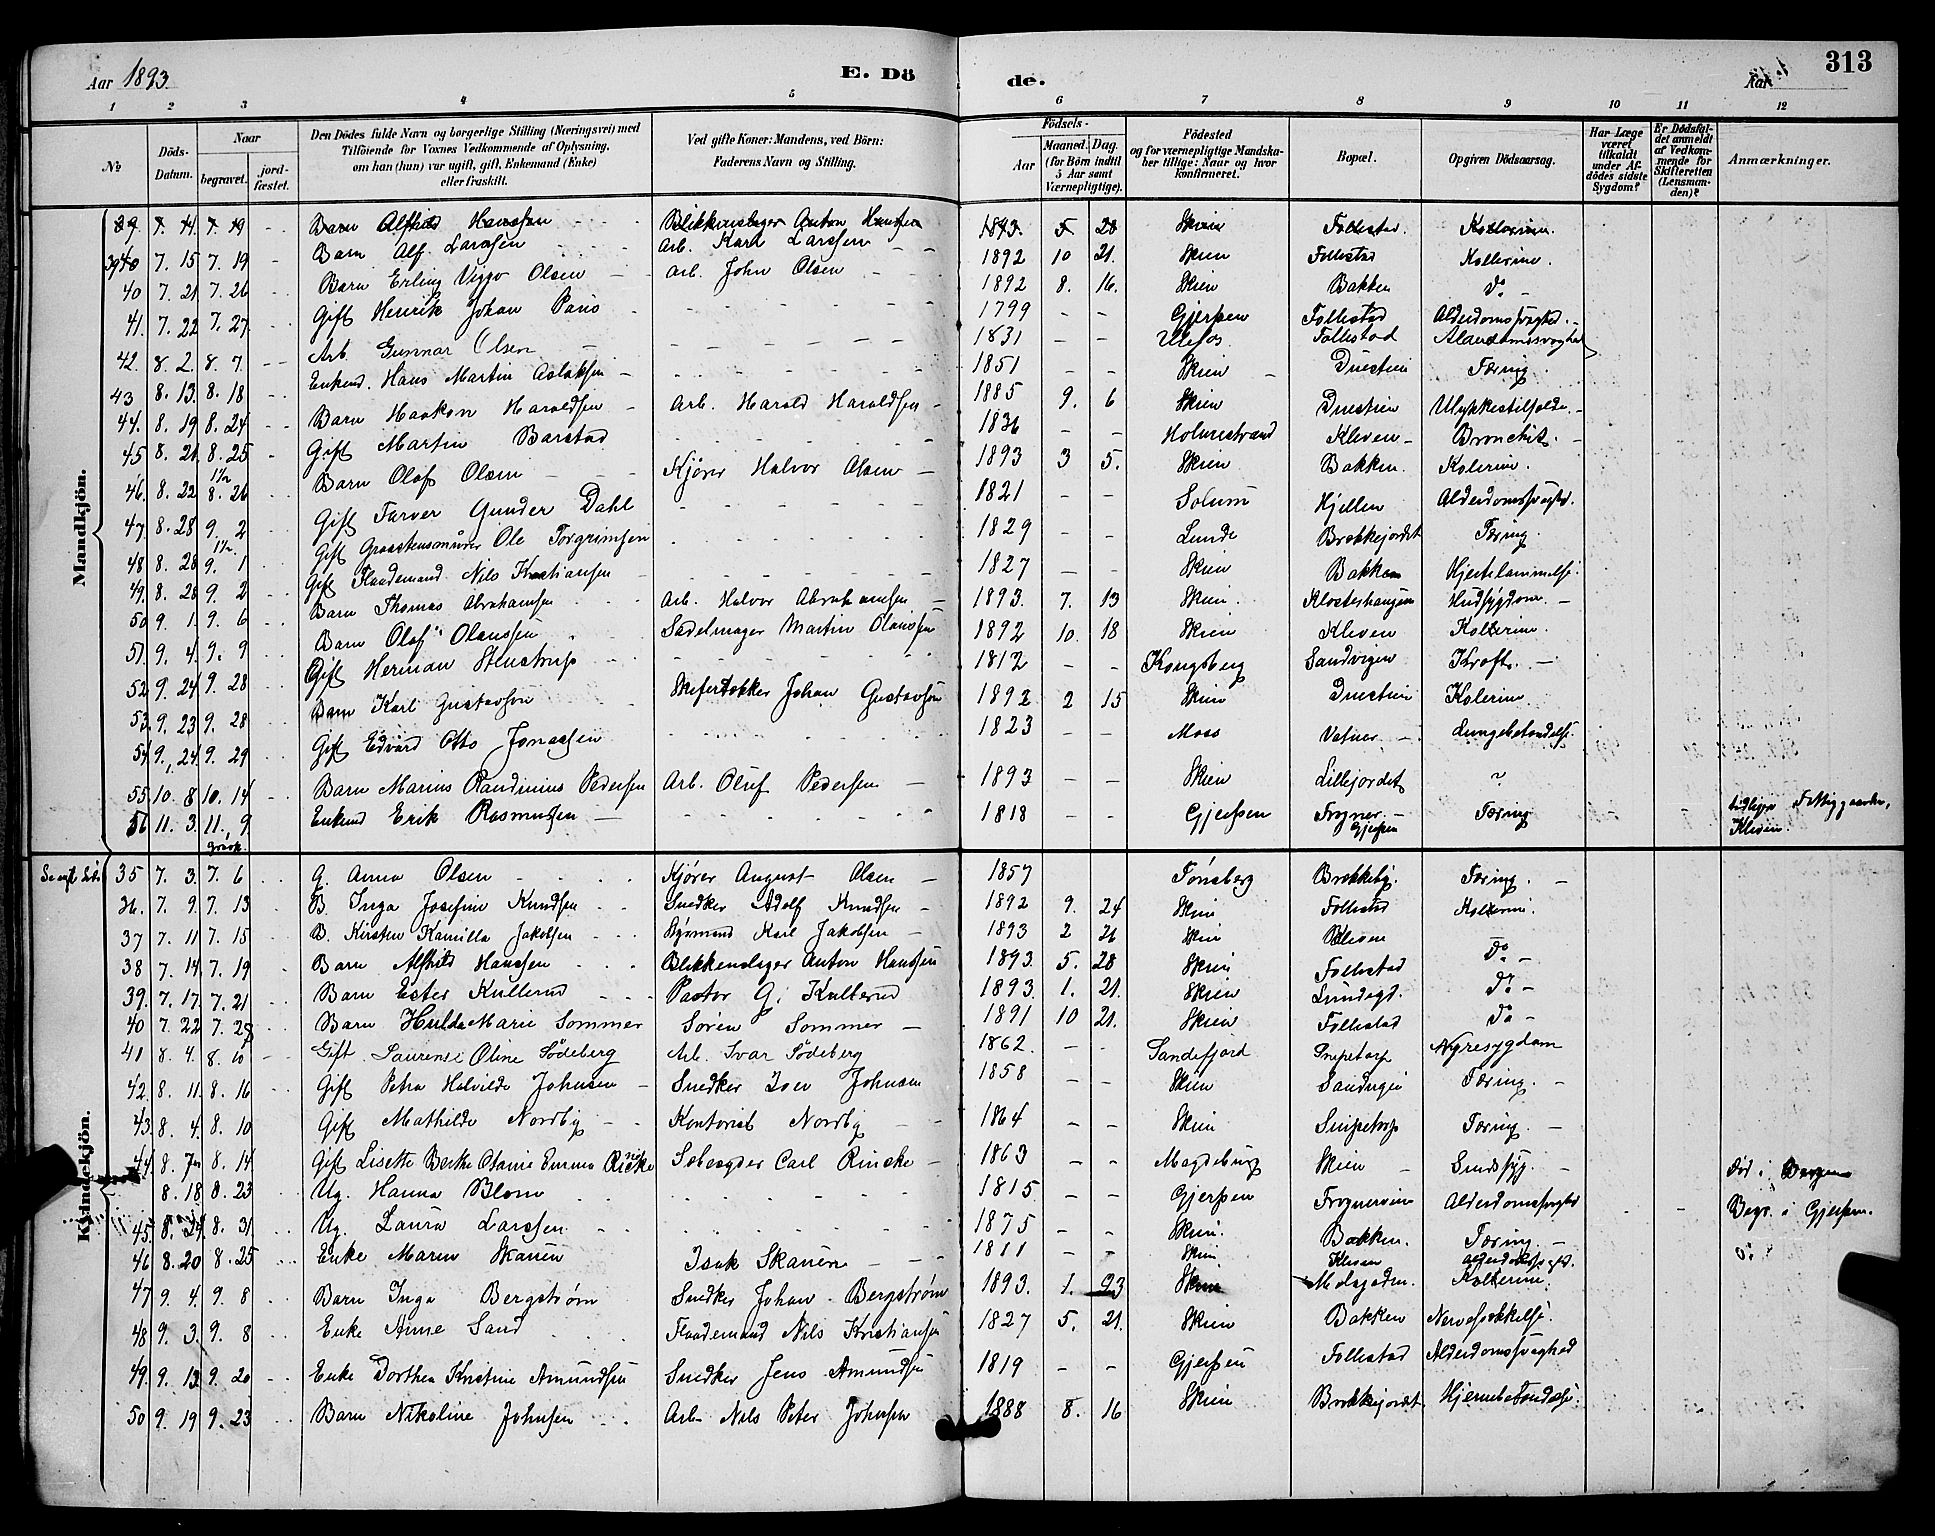 Aar 1893. E. Dö de. Aar 313
1 2 3 4 5 6 7 8 9 10 11 12
No Döds-Datum. Naar begravet. jordfæstet. Den Dödes fulde Navn og borgerlige Stilling (Næringsvei) med Tilföiende for Voxnes Vedkommende af Oplysning, om han (hun) var ugift, gift, Enkemand (Enke) eller fraskilt. Ved gifte Koner: Mandens, ved Börn: Faderens Navn og Stilling. Födsels- Aar Maaned. Dag. (for Börn indtil 5 Aar samt Værnepligtige). Födested og for værnepligtige Mandskaber tillige: Naar og hvor konfirmeret. Bopæl. Opgiven Dödsaarsag. Har Læge været tilkaldt under Afdödes sidste Sygdom? Er Dödsfaldet anmeldt af Vedkommende for Skifteretten (Lensmanden)? Anmærkninger.
Mandkjön.
39. 7. 14. 7. 19 Barn Alfhild Hanssen Blikkenslager Anton Hanssen 1893. 5 28 Skien Follestad. Kolerine.
39 40 7. 15 7. 19 Barn Alf Larssen Arb. Karl Larssen 1892 10 21. Skien Follestad Kollerine.
40 7. 21 7. 26 Barn Erling Viggo Olsen Arb. John Olsen 1892 8. 16. Skien Bakken Do
41. 7. 22 7. 27. Gift Henrik Johan Paus 1799 Gjerpen Follestad Alderdomssvaghed.
42. 8. 2. 8. 7 Arb. Gunnar Olsen 1831 Ulefos Follestad Alderdomssvaghed
43 8. 13. 8. 18 Enkem. Hans Martin Aslaksen 1851 Skien Duestien Tæring.
44. 8. 19 8. 24 Barn Haakon Haroldsen Arb. Harold Haroldsen 1885 9. 6 Skien Duestien Ulykkestilfælde.
45 8. 21. 8. 25 Gift Martin Barstad 1836 Holmestrand Kleven Bronchit.
46. 8. 22 8. 26 Barn Olof Olsen Kjörer Halvor Olsen 1893 3 5. Skien Bakken. Kolerine.
47. 8. 28 9. 2 Gift Farver Gunder Dahl 1821 Solum Hjellen Alderdomssvaghd.
48 8. 28 9. 1 Gift Graastensmurer Ole Torgrimsen 1829 Lunde Brekkejordet Tæring.
49. 8. 28 9. 2 Gift Flaademand Nils Kristiansen 1827 Skien Bakken Hjertelammelse.
50 9. 1. 9. 6 Barn Thomas Abrahamsen Arb. Halvor Abrahamsen 1893. 7. 13 Skien. Klosterhaugen Hudsygdom.
51. 9. 4. 9. 9 Barn Olaf Olaussen Sadelmager Martin Olaussen 1892 10. 18 Skien Kleven Kolerine.
52. 9. 24 9. 28 Gift Herman Stenstrup 1812 Kongsberg Sandvigen Kræft.
53. 9. 23 9. 28 Barn Karl Gustavson Skifertækker Johan Gustavsön 1892 2 15 Skien Duestien Kolerine
54. 9. 24 9. 29 Gift Edvard Otto Jonassen 1823 Moss Vatner Lungebetændelse.
55. 10. 8 10. 14 Barn Marius Randinius Pedersen Arb. Oluf Pedersen 1893 Skien Lillejordet ?
56 11. 3. 11. 9 Enkem Erik Rasmussen 1818 Gjerpen Frogner. Gjerpen Tæring tidligere Fattiggaarden, Kleven.
Kvindekjön.
35 7. 3. 7. 6 G. Anna Olsen Kjörer August Olsen 1857 Tønsberg Brekkeby. Tæring.
36. 7. 9. 7. 13 B. Inga Josefine Knudsen Snedker Adolf Knudsen 1892 9. 24 Skien Follestad Kolerine.
37 7. 11 7. 15 B. Kirsten Kamilla Jakobsen Bymand Karl Jakobsen 1893 2 21 Skien Kleven Do
38 7. 14 7. 19 Barn Alfhild Hanssen Blikkenslager Anton Hanssen 1893. 5. 28 Skien Follestad Do
39. 7. 17. 7. 21 Barn Ester Kullerud Pastor G. Kullerud 1893. 1. 21. Skien Lundegd. Do
40 7. 22 7. 28 Barn Hulda Marie Sommer Sören Sommer 1891 10 21. Skien Follestad Do
41 8. 4. 8. 10 Gift Laurense Oline Södeberg Arb. Ivar Södeberg 1862. Sandefjord Snipetorp Nyresygdom
42. 8. 11. 8. 16 Gift Petra Halvilde Johnsen Snedker Iver Johnsen 1858 Skien Sandvigen Tæring.
43. 8. 4. 8. 10 Gift Mathilde Nordby Kontorist Nordby 1864 Skien Snipetorp Tæring.
44 8. 7. 8. 14 Gift Lisette Berthe Otanie Emma Rinske Seteagder Carl Rinske 1863 Magdeburg Skien Sindssyg. död i Bergen
8. 18 8. 23 Ug. Hanna Blom 1815 Gjerpen Frognerveien Alderdomssvaghed Begr. i Gjerpen.
45. 8. 24 8. 31 Ug. Laura Larssen 1875 Skien. Bakken. Tæring.
46 8. 20 8. 25 Enke Maren Skanen Isak Skanen 1811 Skien Kleven Alderdomssvaghd. Do
47 9. 4. 9. 8 Barn Inga Bergström Snedker Johan Bergström 1893. 1. 23 Skien Melsgaden. Kolerine.
48 9. 3. 9. 8 Enke Anne Sand Flaademand Nils Kristiansen 1827 5. 21. Skien Bakken Nervesvækkelse.
49. 9. 13. 9. 20 Enke Dorthea Kristine Amundsen Snedker Jens Amundsen 1819 Gjerpen Follestad Alderdomssvaghed
50 9. 19 9. 23 Barn Nikoline Johnsen Arb. Nils Peter Johnsen 1888 8. 16 Skien Brekkejordet Hjernebetændelse.